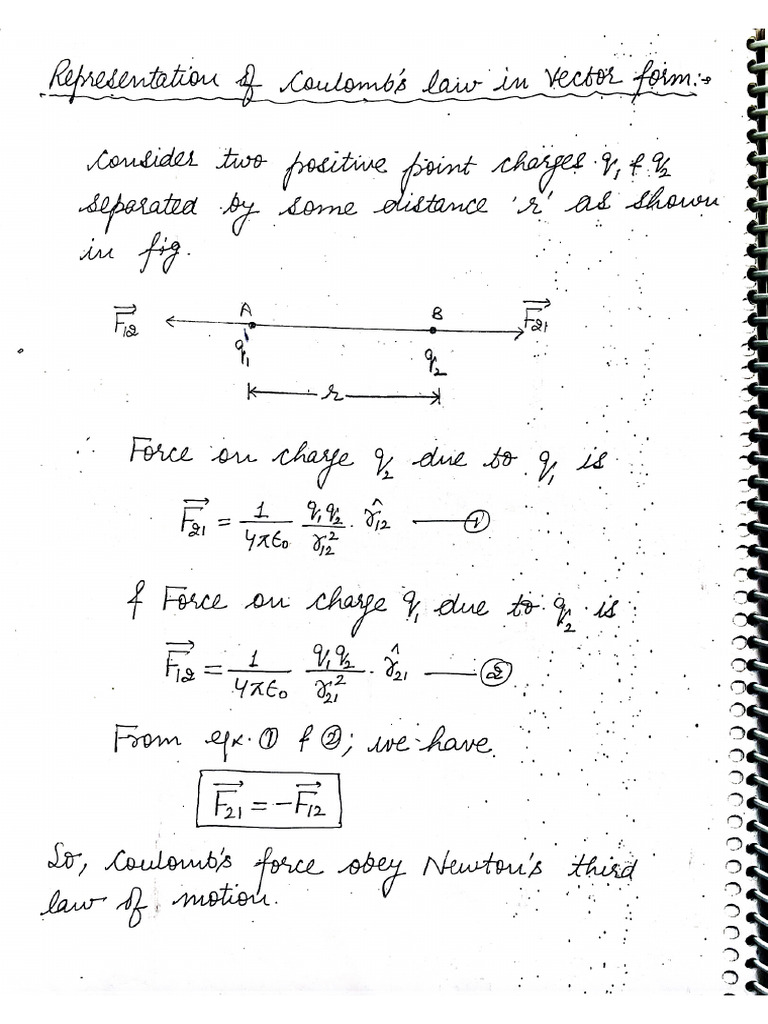 Representation of Coulomb's law in vector form:→
Consider two positive point charges q₁ & q₂
separated by some distance 'r' as shown
in fig.
F₁₂→ A B F₂₁→
q₁ q₂
r
∴ Force on charge q₂ due to q₁ is
F₂₁→ = 1/4πε₀ q₁q₂/r₁₂² . r̂₁₂ —— ①
& Force on charge q₁ due to q₂ is
F₁₂→ = 1/4πε₀ q₁q₂/r₂₁² . r̂₂₁ —— ②
From eqn. ① & ②; we have
F₂₁→ = -F₁₂→
So, Coulomb's force obey Newton's third
law of motion.